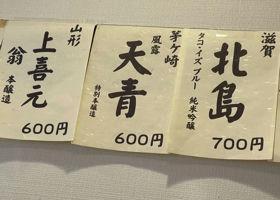 滋賀
北島
タコ・イズ ブルー 純米吟醸
700円
茅ヶ崎
天青
風露
特別本醸造
600円
山形
上喜元
翁
本醸造
600円